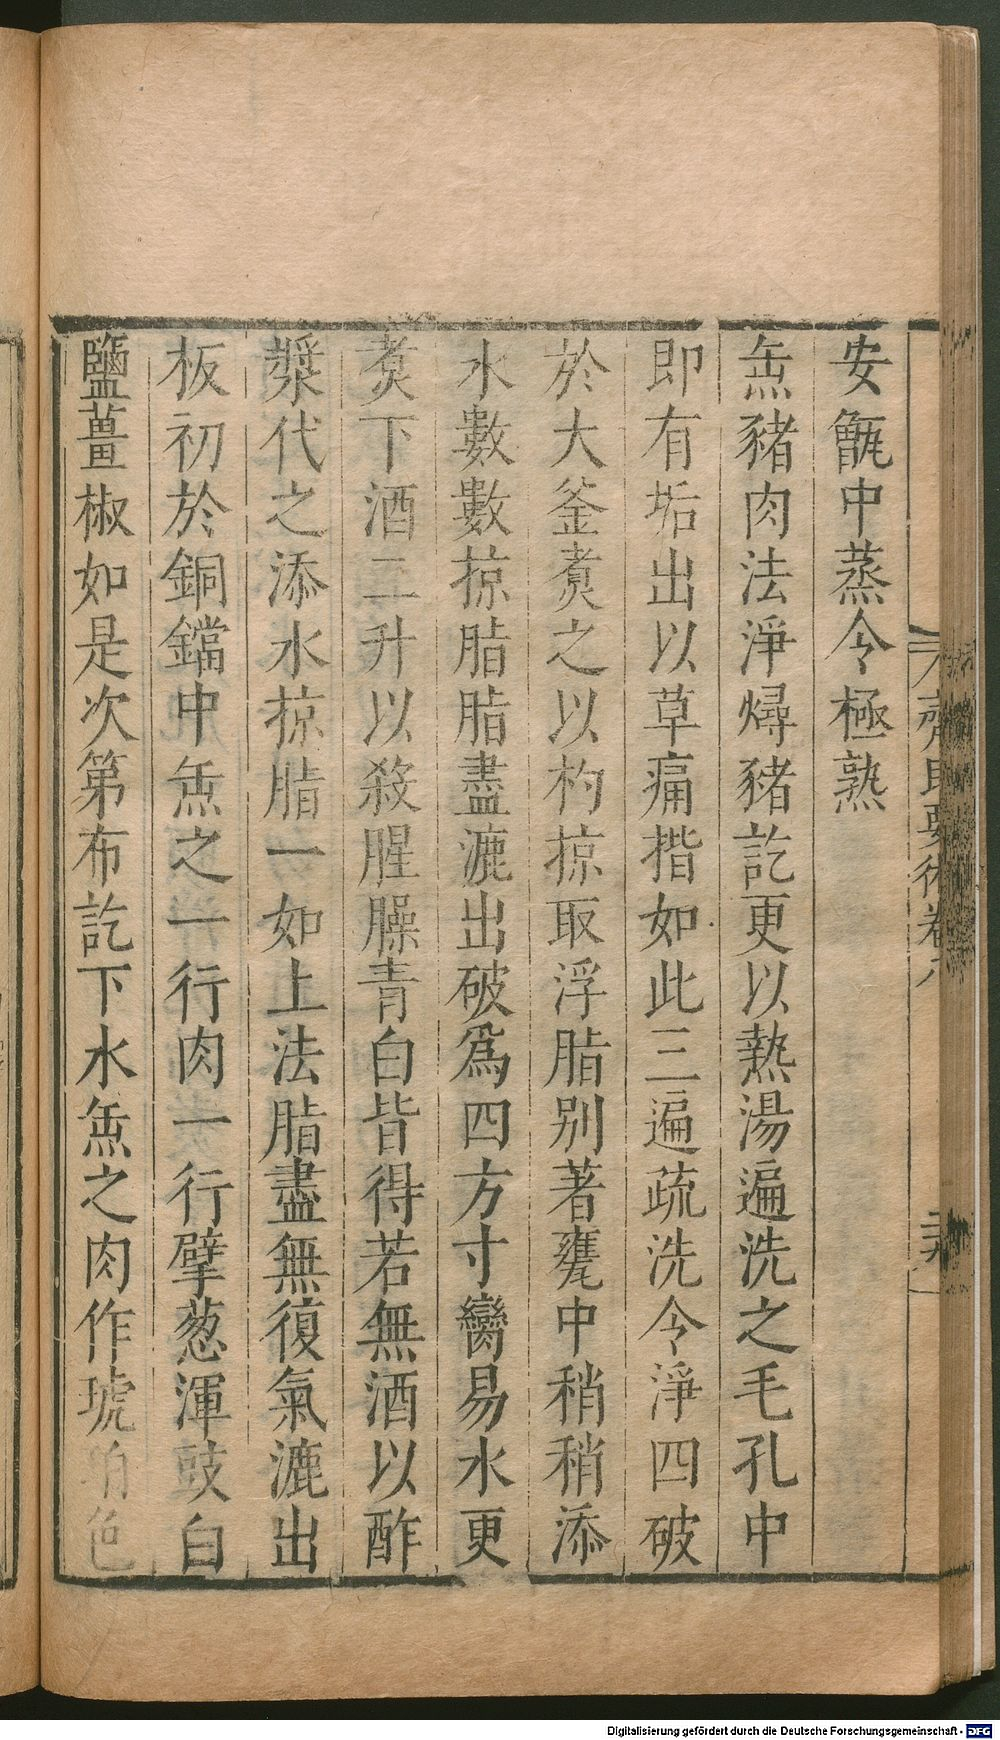 安甑中蒸令極熟
缹豬肉法淨燖豬訖更以熱湯遍洗之毛孔中
即有垢出以草痛揩如此三遍疏洗令淨四破
於大釜煮之以杓掠取浮脂别著甕中稍稍添
水數數掠脂脂盡漉出破爲四方寸臠易水更
煮下酒二升以殺腥臊青白皆得若無酒以酢
漿代之添水掠脂一如上法脂盡無復氣漉出
板初於銅鐺中缹之一行肉一行擘葱渾豉白
鹽薑椒如是次第布訖下水缹之肉作琥珀色
齊民要術卷八
Digitalisierung gefördert durch die Deutsche Forschungsgemeinschaft - DFG